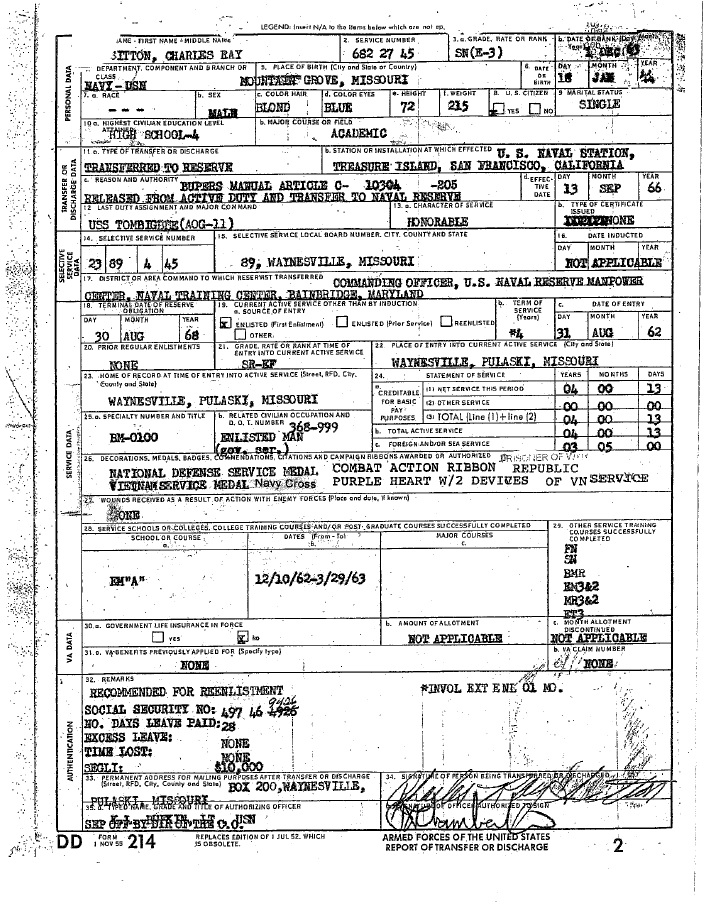 LEGEND: Insert N/A to the items below which are not ap.
NAME - FIRST NAME - MIDDLE NAME
2. SERVICE NUMBER
3.a. GRADE, RATE OR RANK
b. DATE OF RANK (Day, Month, Year)
SITTON, CHARLES RAY
682 27 45
SN(E-3)
DEC
DEPARTMENT, COMPONENT AND BRANCH OR CLASS
5. PLACE OF BIRTH (City and State or Country)
6. DATE OF BIRTH
DAY MONTH YEAR
NAVY-USN
MOUNTAIN GROVE, MISSOURI
18 JAN 44
PERSONAL DATA
7. a. RACE
b. SEX
c. COLOR HAIR
d. COLOR EYES
e. HEIGHT
f. WEIGHT
8. U.S. CITIZEN
9 MARITAL STATUS
- - -
MALE
BLOND
BLUE
72
215
X YES NO
SINGLE
10 a. HIGHEST CIVILIAN EDUCATION LEVEL ATTAINED
b. MAJOR COURSE OR FIELD
HIGH SCHOOL-4
ACADEMIC
11. a. TYPE OF TRANSFER OR DISCHARGE
b. STATION OR INSTALLATION AT WHICH EFFECTED
U. S. NAVAL STATION,
TRANSFERRED TO RESERVE
TREASURE ISLAND, SAN FRANCISCO, CALIFORNIA
TRANSFER OR DISCHARGE DATA
c. REASON AND AUTHORITY
BUPERS MANUAL ARTICLE C- 10304 -205
RELEASED FROM ACTIVE DUTY AND TRANSFER TO NAVAL RESERVE
d. EFFECTIVE DATE
DAY MONTH YEAR
13 SEP 66
12 LAST DUTY ASSIGNMENT AND MAJOR COMMAND
13. a. CHARACTER OF SERVICE
b. TYPE OF CERTIFICATE ISSUED
USS TOMBIGBEE(AOG-11)
HONORABLE
NONE
SELECTIVE SERVICE DATA
14. SELECTIVE SERVICE NUMBER
15. SELECTIVE SERVICE LOCAL BOARD NUMBER, CITY, COUNTY AND STATE
16. DATE INDUCTED
DAY MONTH YEAR
23 89 4 45
89, WAYNESVILLE, MISSOURI
NOT APPLICABLE
17. DISTRICT OR AREA COMMAND TO WHICH RESERVIST TRANSFERRED
COMMANDING OFFICER, U.S. NAVAL RESERVE MANPOWER
CENTER, NAVAL TRAINING CENTER, BAINBRIDGE, MARYLAND
18. TERMINAL DATE OF RESERVE OBLIGATION
19. CURRENT ACTIVE SERVICE OTHER THAN BY INDUCTION
a. SOURCE OF ENTRY
b. TERM OF SERVICE (Years)
c. DATE OF ENTRY
DAY MONTH YEAR
X ENLISTED (First Enlistment) ENLISTED (Prior Service) REENLISTED
OTHER:
DAY MONTH YEAR
30 AUG 68
*4
31 AUG 62
20. PRIOR REGULAR ENLISTMENTS
21. GRADE, RATE OR RANK AT TIME OF ENTRY INTO CURRENT ACTIVE SERVICE
22 PLACE OF ENTRY INTO CURRENT ACTIVE SERVICE (City and State)
NONE
SR-EF
WAYNESVILLE, PULASKI, MISSOURI
SERVICE DATA
23. HOME OF RECORD AT TIME OF ENTRY INTO ACTIVE SERVICE (Street, RFD, City, County and State)
WAYNESVILLE, PULASKI, MISSOURI
24. STATEMENT OF SERVICE YEARS MONTHS DAYS
a. CREDITABLE FOR BASIC PAY PURPOSES
(1) NET SERVICE THIS PERIOD 04 00 13
(2) OTHER SERVICE 00 00 00
(3) TOTAL (Line (1) + line (2) 04 00 13
b. TOTAL ACTIVE SERVICE 04 00 13
c. FOREIGN AND/OR SEA SERVICE 03 05 00
25.a. SPECIALTY NUMBER AND TITLE
b. RELATED CIVILIAN OCCUPATION AND D.O.T. NUMBER
368-999
EM-0100
ENLISTED MAN
(gov. ser.)
26. DECORATIONS, MEDALS, BADGES, COMMENDATIONS, CITATIONS AND CAMPAIGN RIBBONS AWARDED OR AUTHORIZED
NATIONAL DEFENSE SERVICE MEDAL COMBAT ACTION RIBBON REPUBLIC
VIETNAM SERVICE MEDAL Navy Cross PURPLE HEART W/2 DEVICES OF VN SERVICE
27. WOUNDS RECEIVED AS A RESULT OF ACTION WITH ENEMY FORCES (Place and date, if known)
NONE
28. SERVICE SCHOOLS OR COLLEGES, COLLEGE TRAINING COURSES AND/OR POST-GRADUATE COURSES SUCCESSFULLY COMPLETED
29. OTHER SERVICE TRAINING COURSES SUCCESSFULLY COMPLETED
SCHOOL OR COURSE a.
DATES (From - To) b.
MAJOR COURSES c.
EM"A"
12/10/62-3/29/63
FN
SN
BMR
EN3&2
MR3&2
ET3
VA DATA
30.a. GOVERNMENT LIFE INSURANCE IN FORCE
YES X NO
b. AMOUNT OF ALLOTMENT
NOT APPLICABLE
c. MONTH ALLOTMENT DISCONTINUED
NOT APPLICABLE
31.a. VA BENEFITS PREVIOUSLY APPLIED FOR (Specify type)
NONE
b. VA CLAIM NUMBER
NONE
AUTHENTICATION
32. REMARKS
RECOMMENDED FOR REENLISTMENT *INVOL EXT ENL 01 MO.
9426
SOCIAL SECURITY NO: 497 46
NO. DAYS LEAVE PAID: 28
EXCESS LEAVE: NONE
TIME LOST: NONE
SEGLI: $10,000
33. PERMANENT ADDRESS FOR MAILING PURPOSES AFTER TRANSFER OR DISCHARGE (Street, RFD, City, County and State)
BOX 200, WAYNESVILLE,
PULASKI, MISSOURI
34. SIGNATURE OF PERSON BEING TRANSFERRED OR DISCHARGED
35. a. TYPED NAME, GRADE AND TITLE OF AUTHORIZING OFFICER
b. SIGNATURE OF OFFICER AUTHORIZED TO SIGN
SEP OFF BY DIR OF THE C.O. USN
DD FORM 1 NOV 55 214
REPLACES EDITION OF 1 JUL 52, WHICH IS OBSOLETE.
ARMED FORCES OF THE UNITED STATES
REPORT OF TRANSFER OR DISCHARGE
2